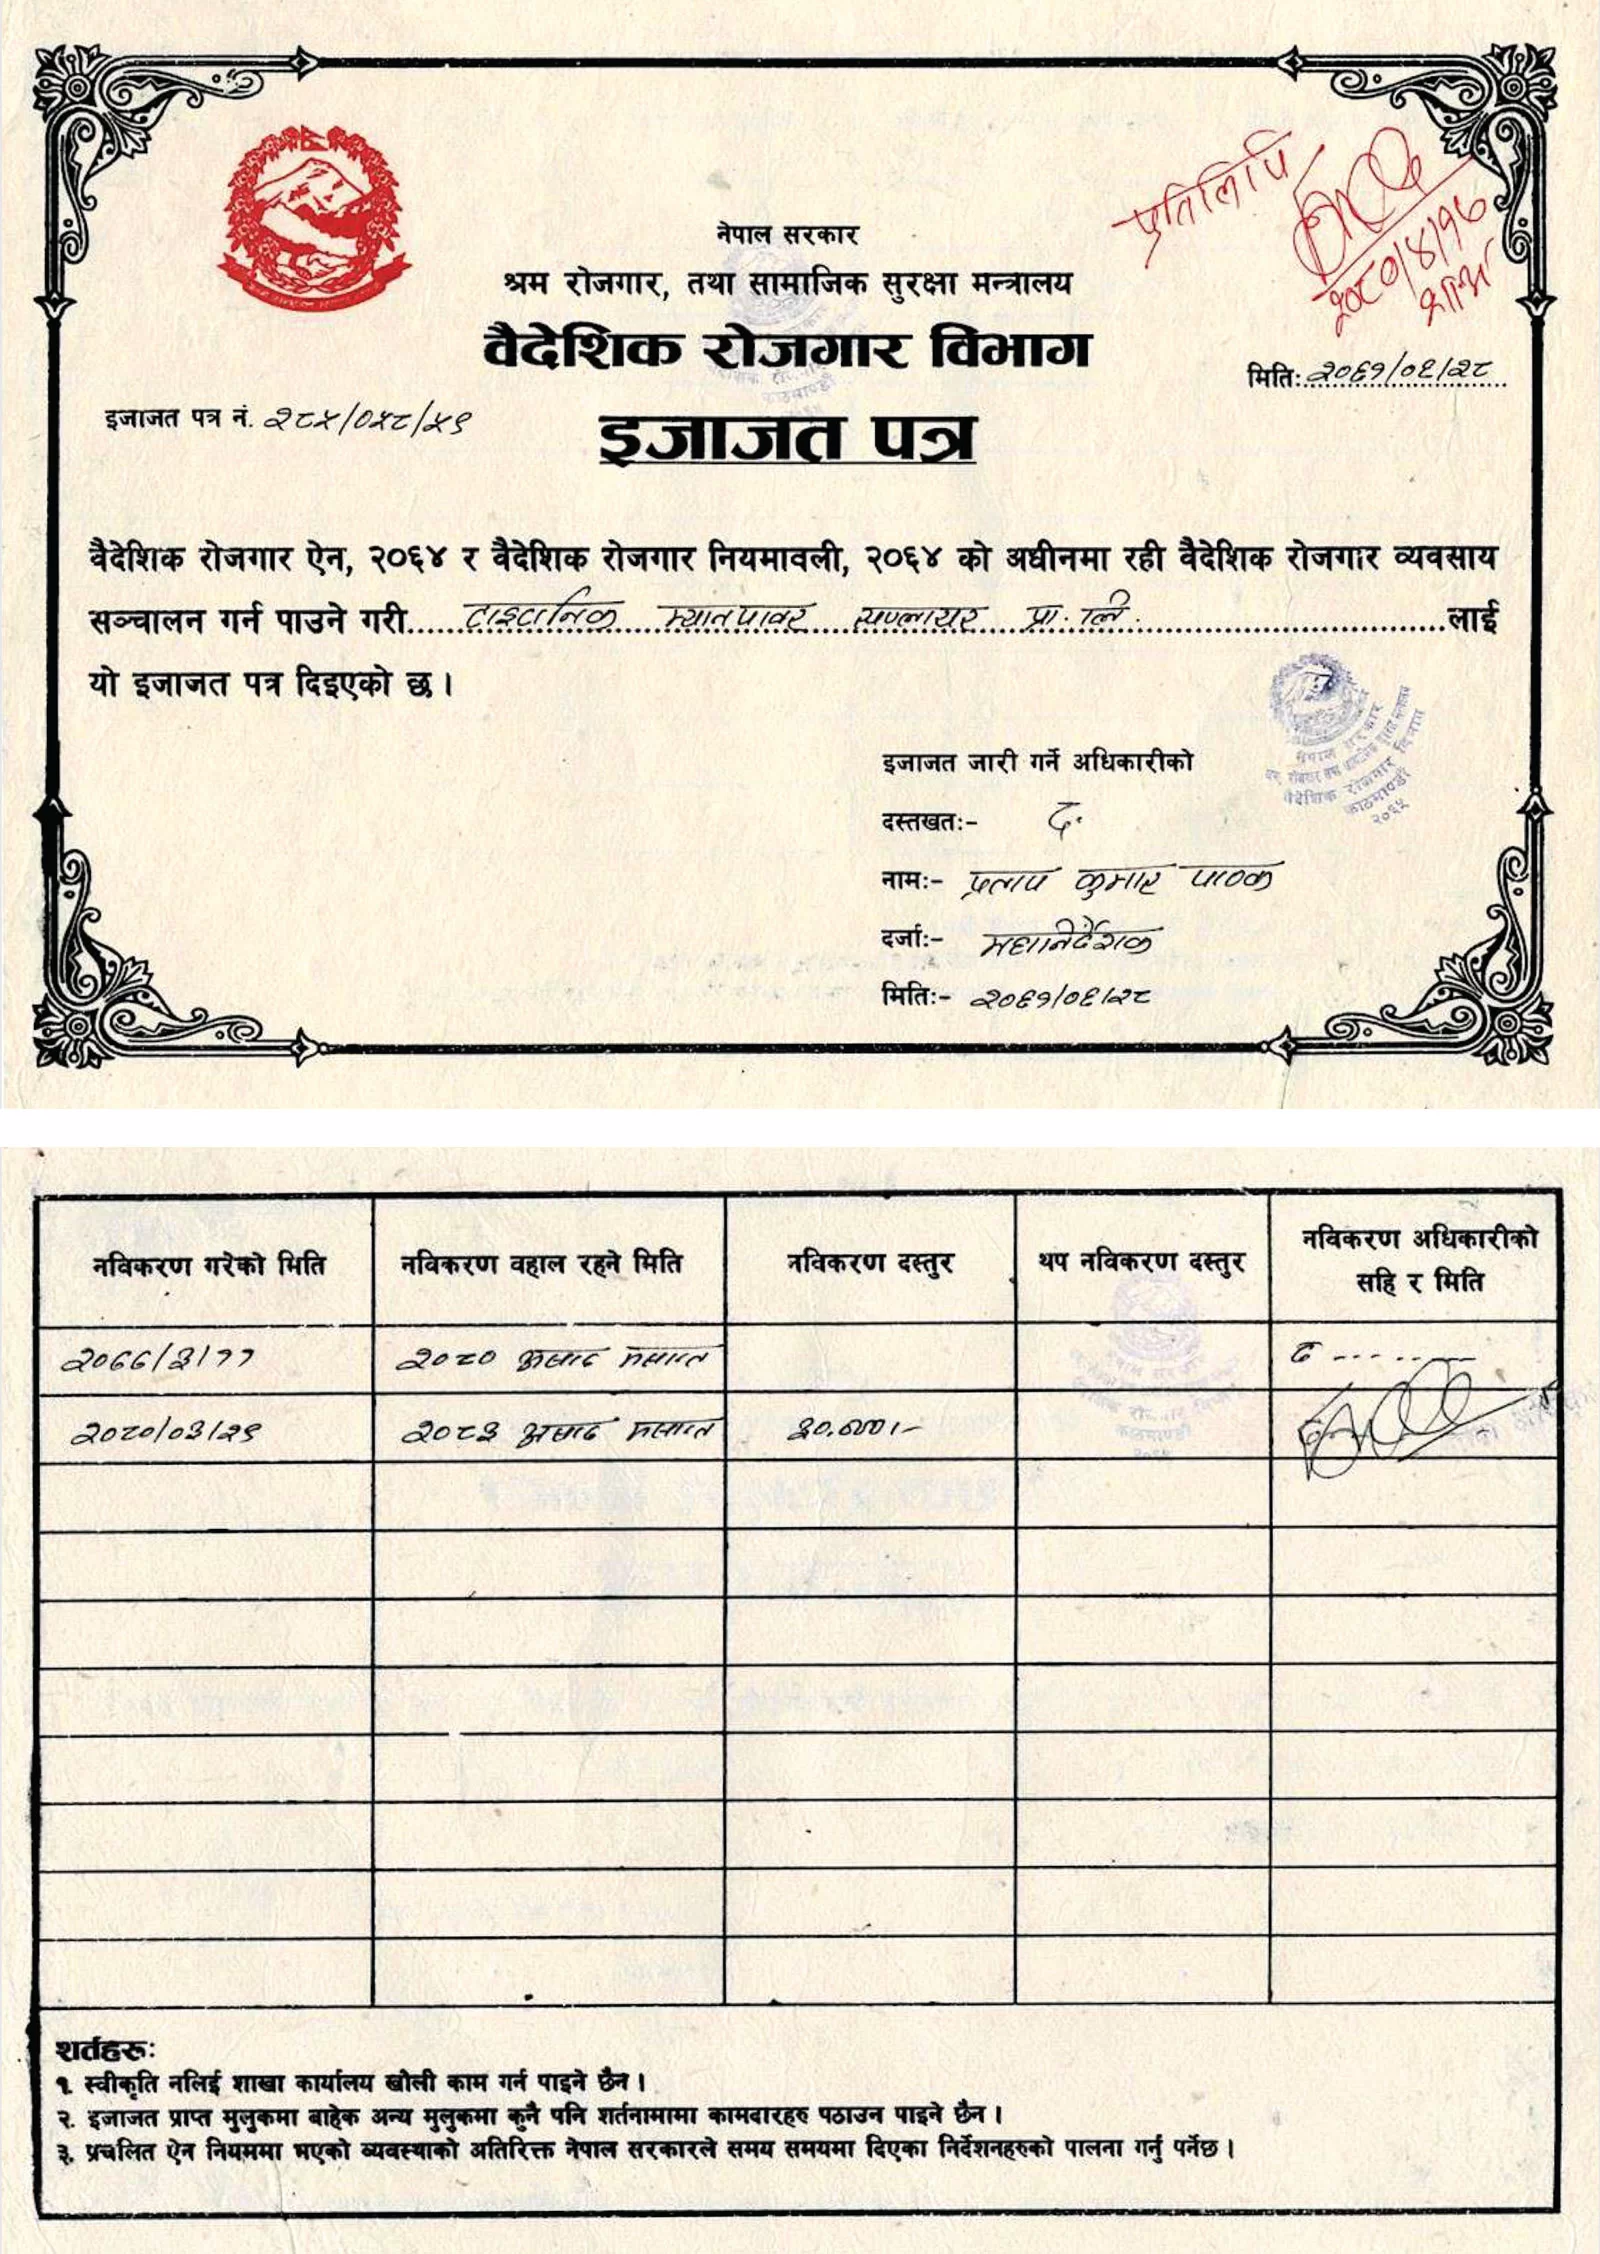 प्रतिलिपि
२०८०/४/१७
नेपाल सरकार
श्रम रोजगार, तथा सामाजिक सुरक्षा मन्त्रालय
वैदेशिक रोजगार विभाग
मितिः २०६१/०६/२८
इजाजत पत्र नं. २८५/०५८/५९
इजाजत पत्र
वैदेशिक रोजगार ऐन, २०६४ र वैदेशिक रोजगार नियमावली, २०६४ को अधीनमा रही वैदेशिक रोजगार व्यवसाय
सञ्चालन गर्न पाउने गरी टाइटानिक म्यानपावर सप्लायर प्रा. लि. लाई
यो इजाजत पत्र दिइएको छ ।
नेपाल सरकार
वैदेशिक रोजगार विभाग
काठमाण्डौ
२०६५
इजाजत जारी गर्ने अधिकारीको
दस्तखतः- द.
नामः- प्रताप कुमार पाठक
दर्जाः- महानिर्देशक
मितिः- २०६१/०६/२८
नविकरण गरेको मिति नविकरण वहाल रहने मिति नविकरण दस्तुर थप नविकरण दस्तुर नविकरण अधिकारीको
सहि र मिति
२०७७/३/११ २०८० अषाढ मसान्त द
२०८०/०३/२९ २०८३ अषाढ मसान्त ३०,०००।-
शर्तहरुः
१. स्वीकृति नलिई शाखा कार्यालय खोली काम गर्न पाइने छैन ।
२. इजाजत प्राप्त मुलुकमा बाहेक अन्य मुलुकमा कुनै पनि शर्तनामामा कामदारहरु पठाउन पाइने छैन ।
३. प्रचलित ऐन नियममा भएको व्यवस्थाको अतिरिक्त नेपाल सरकारले समय समयमा दिएका निर्देशनहरुको पालना गर्नु पर्नेछ ।